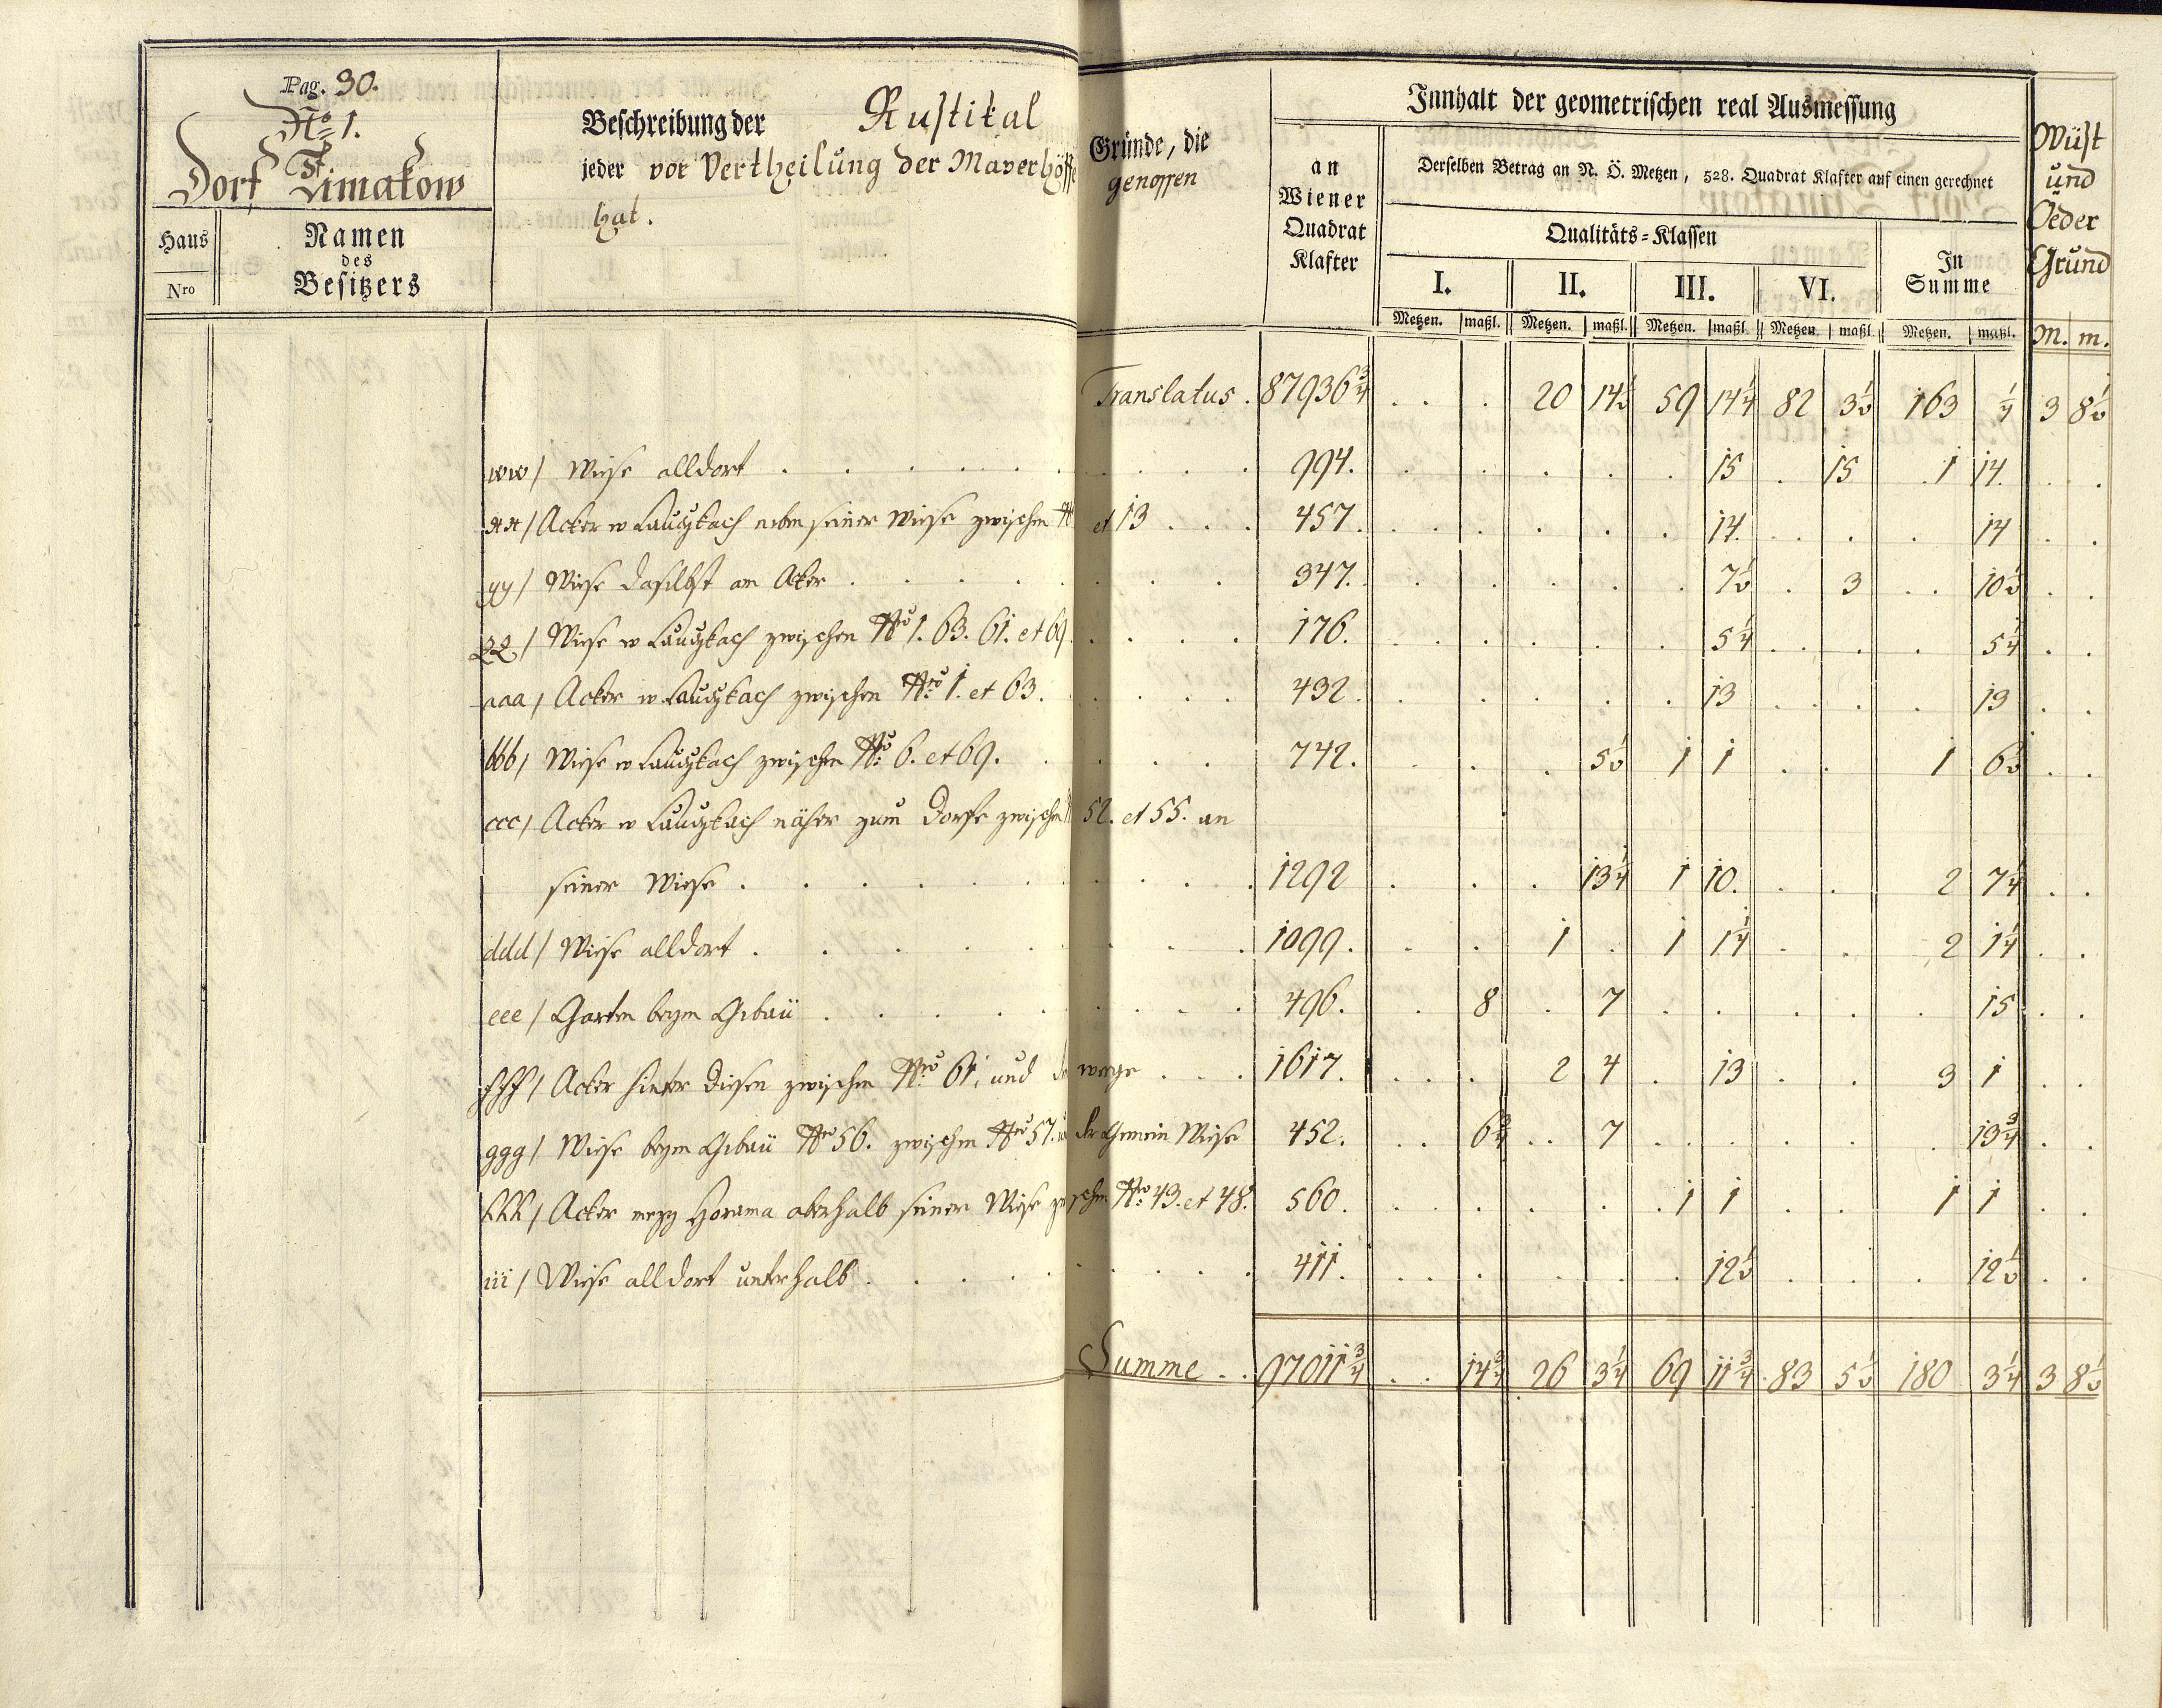 Pag. 30.
No 1.
Dorf Timakow
Haus Nro
Namen des Besitzers
Beschreibung der Rustikal Gründe, die
jeder vor Vertheilung der Mayerhöffe genossen
hat.
Innhalt der geometrischen real Ausmessung
an Wiener Quadrat Klafter
Derselben Betrag an N. Ö. Metzen, 528. Quadrat Klafter auf einen gerechnet
Qualitäts-Klassen
I. II. III. VI.
In Summe
Wüst und Oeder Grund
Metzen. maßl. Metzen. maßl. Metzen. maßl. Metzen maßl. Metzen. maßl. M. m.
Translatus . 87936 3/4 . . 20 14 1/2 59 14 1/4 82 3 1/2 163 1/4 3 8 1/2
ww / Wiese alldort . . . 994. 15 15 1 14.
xx / Acker w Lauczkach neben seiner Wiese zwischen et 13 . . . 457. 14. 14
yy / Wiese daselbst am Acker . . . 347. 7 1/2 3 10 1/2
zz / Wiese w Lauczkach zwischen Nro 1. 63. 61. et 69. 176. 5 1/4 5 1/4
aaa / Acker w Lauczkach zwischen Nro 1. et 63. 432. 13 13
bbb / Wiese w Lauczkach zwischen Nro 6. et 69. 742. 5 1/2 1 1 1 6 1/2
ccc / Acker w Lauczkach näher zum Dorfe zwischen 52. et 55. an
seiner Wiese . . . 1292 13 1/4 1 10. 2 7 1/4
ddd / Wiese alldort . . . 1099. 1 . 1 1 1/4 2 1 1/4
eee / Garten beym Gebäu . . . 496. 8 7 15
fff / Acker hinter diesen zwischen Nro 61, und de wege . . . 1617. 2 4 13 3 1
ggg / Wiese beym Gebäu Nro 56. zwischen Nro 57. u der Gemein Wiese 452. 6 3/4 7 13 3/4
hhh / Acker mezy Horama oberhalb seiner Wiese zwischen Nro 43. et 48. 560. 1 1 1 1
iii / Wiese alldort unterhalb . . . 411. 12 1/2 12 1/2
Summe . . 97011 3/4 . . 14 3/4 26 3 1/4 69 11 3/4 83 5 1/2 180 3 1/4 3 8 1/2